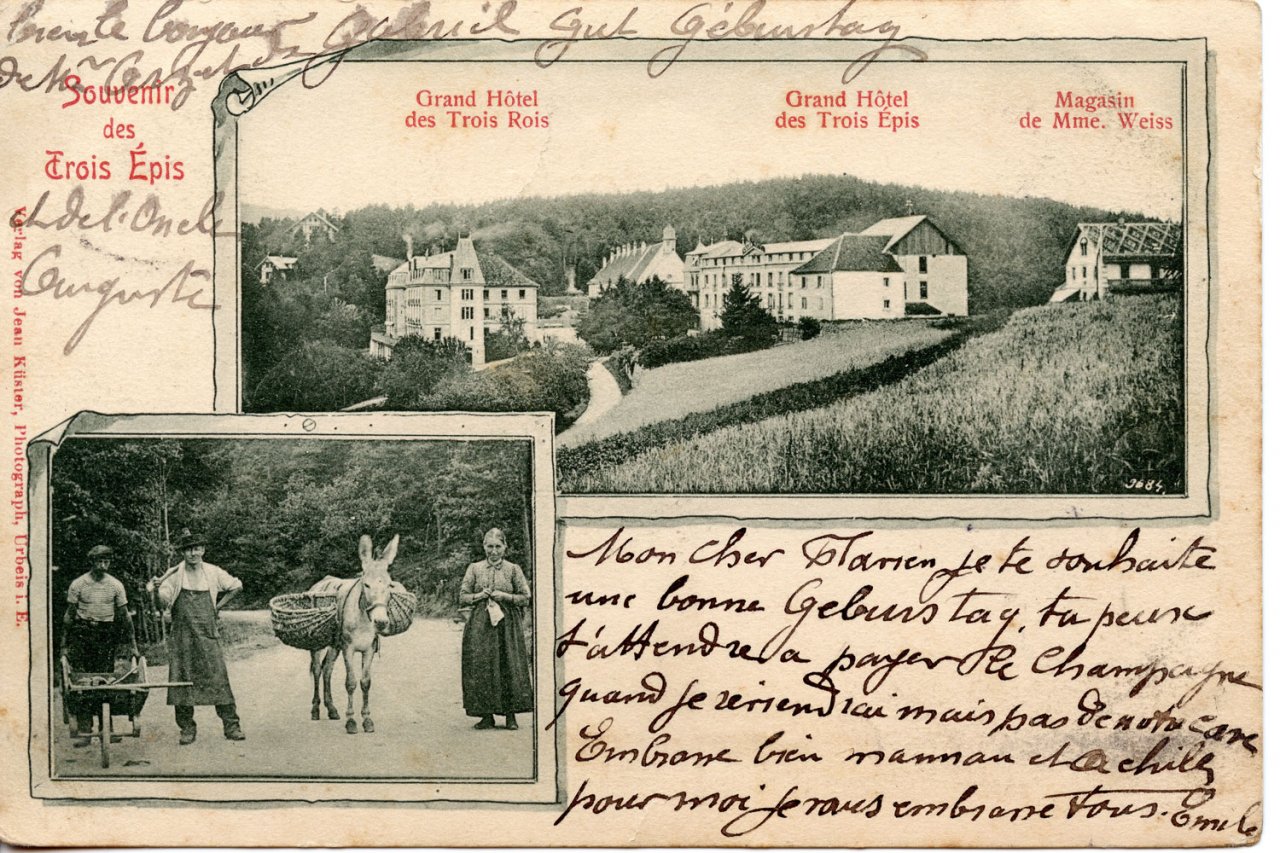 bien le bonjour Gabriel Gut Geburstag
de Mr
Souvenir
des
Trois Épis
Grand Hôtel
des Trois Rois
Grand Hôtel
des Trois Épis
Magasin
de Mme. Weiss
et de l'Oncle
Auguste
Verlag von Jean Küster, Photograph, Urbeis i. E.
9684.
Mon cher Flarien je te souhaite
une bonne Geburstag, tu peux
t'attendre a payer le Champagne
quand je reviendrai mais pas de notre cave
Embrasse bien maman et Achille
pour moi je vous embrasse tous. Emile